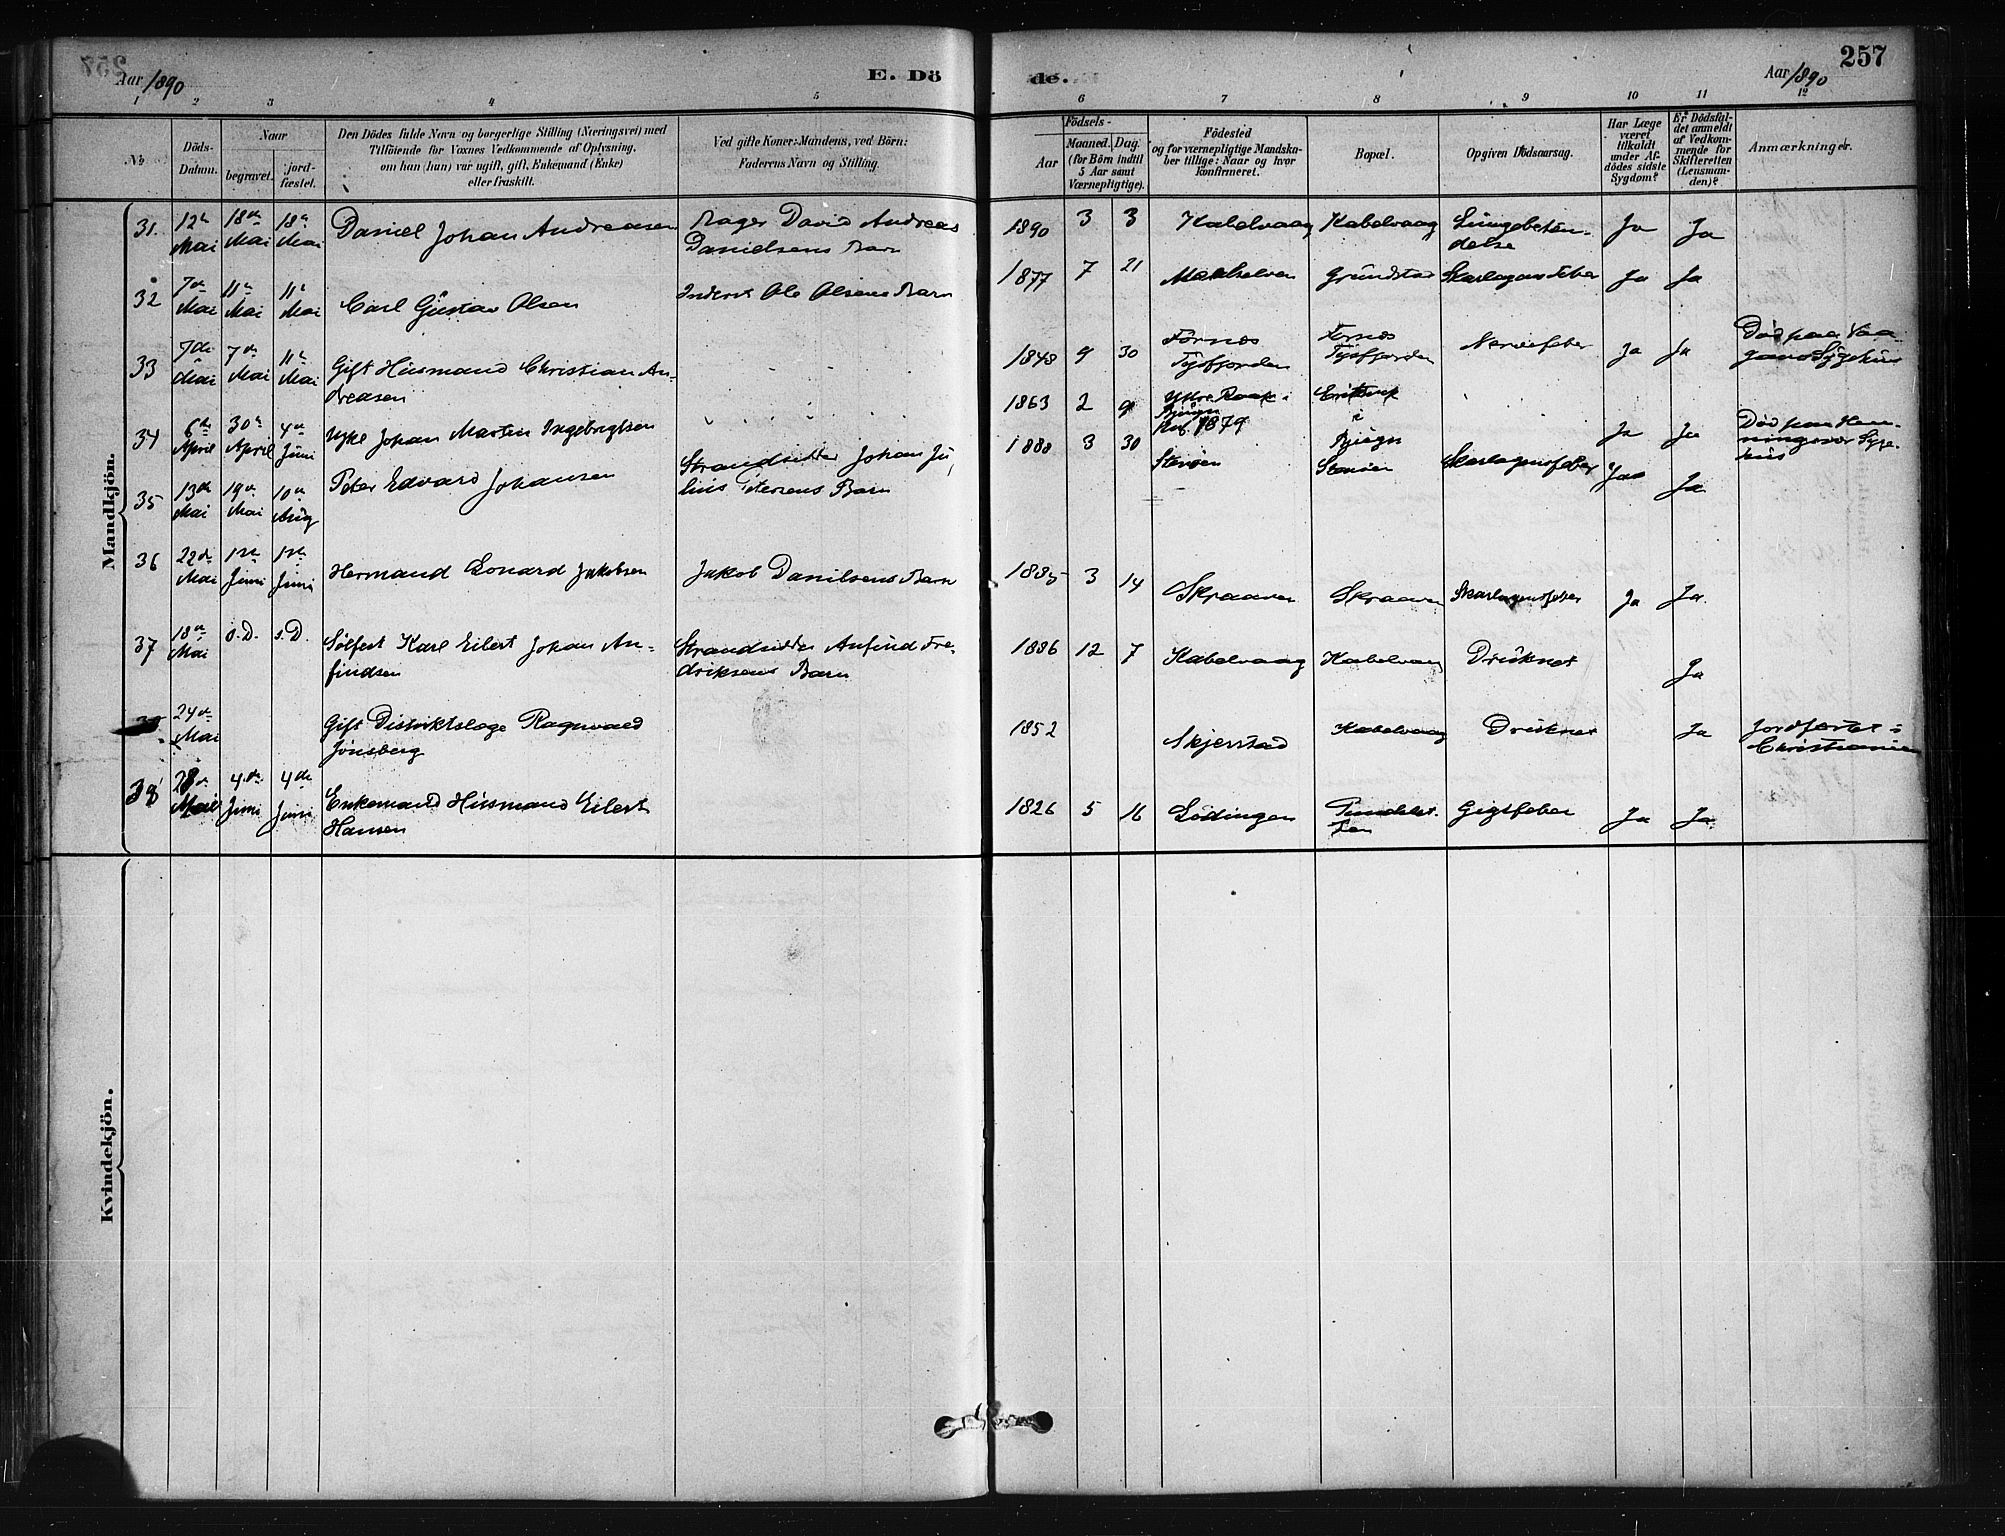 257
Aar 1890
E. Dö
de.
Aar 1890
1 2 3 4 5 6 7 8 9 10 11 12
No
Döds-
Datum.
Naar
begravet.
jord-
fæstet.
Den Dödes fulde Navn og borgerlige Stilling (Næringsvei) med
Tilföiende for Voxnes Vedkommende af Oplysning,
om han (hun) var ugift, gift, Enkemand (Enke)
eller fraskilt.
Ved gifte Koner: Mandens, ved Börn:
Faderens Navn og Stilling.
Födsels-
Aar
Maaned. Dag.
(for Börn indtil
5 Aar samt
Værnepligtige).
Födested
og for værnepligtige Mandska-
ber tillige: Naar og hvor
konfirmeret.
Bopæl.
Opgiven Dödsaarsag.
Har Læge
været
tilkaldt
under Af-
dödes sidste
Sygdom?
Er Dödsfal-
det anmeldt
af Vedkom-
mende for
Skifteretten
(Lensman-
den)?
Anmærkninger.
Mandkjön.
31. 12te Mai 18de Mai 18de Mai Daniel Johan Andreasen Bager David Andreas
Danielsens Barn 1890 3 3 Kabelvaag Kabelvaag Lungebetæn-
delse Ja Ja
32 7de Mai 11te Mai 11te Mai Carl Gustav Olsen Inderst Ole Olsens Barn 1877 7 21 Grundstad Skarlagensfeber Ja Ja
33 7de Mai 7de Mai 11te Mai Gift Husmand Christian An-
dreasen 1848 9 30 Fornes
Tysfjorden Fornes
Tysfjorden Nervefeber Ja Ja Död paa Vaa-
gans Sygehus
34 6te April 30te April 4de Juni Ugke Johan Martin Ingebrigtsen 1863 2 9
Bjugn
Kof. 1879
i
Bjugn Ja Ja Död paa Hen-
ningsvær Syge-
hus
35 13de Mai 19de Mai 10de Aug Peter Edvard Johansen Strandsitter Johan Ju-
lius Petersens Barn 1888 3 30 Storöen Storöen Skarlagensfeber Ja Ja
36 22de Mai 1ste Juni 1ste Juni Hermand Eonard Jakobsen Jakob Danilsens Barn 1885 3 14 Skraaven Skraaven Skarlagensfeber Ja Ja
37 18de Mai s.D. s.D. Sölfest Karl Eilert Johan An-
findsen Strandsitter Anfind Fre-
driksens Barn 1886 12 7 Kabelvaag Kabelvaag Druknet Ja
24de Mai Gift Distriktslæge Ragnvald
Jönsberg 1852 Skjerstad Kabelvaag Druknet Ja Jordfæstet i
Christiania
38 28de Mai 4de Juni 4de Juni Enkemand Husmand Eilert
Hansen 1826 5 16 Lödingen Gigtfeber Ja Ja
Kvindekjön.